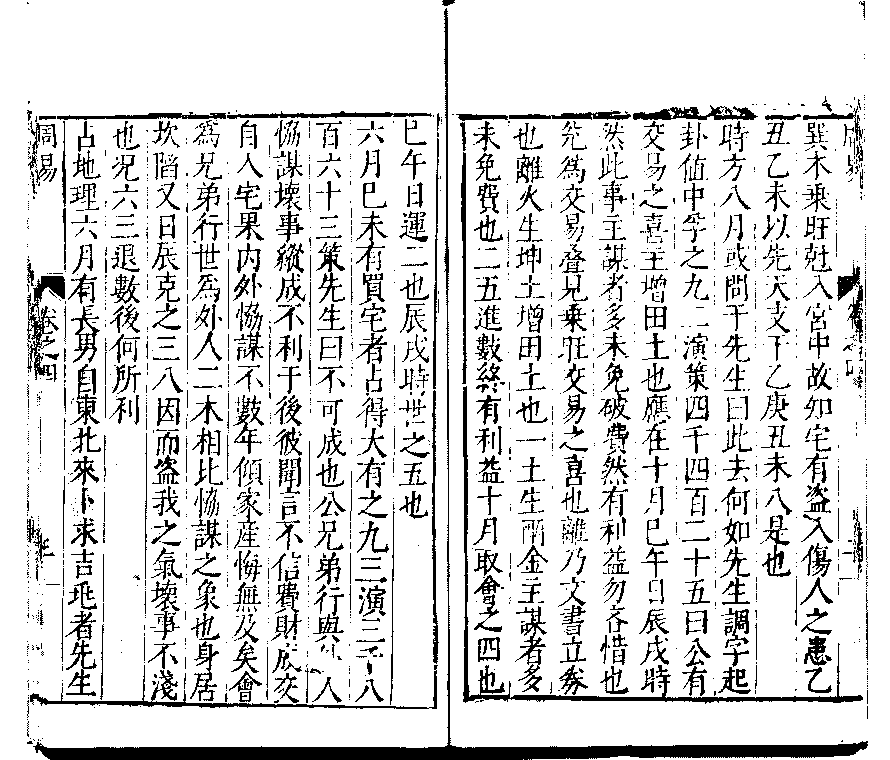 巽木乘旺尅入宮中故知宅有盜入傷人之患乙
丑乙未以先天支干乙庚丑未八是也
時方八月或問于先生曰此去何如先生調字起
卦值中孚之九二演策四千四百二十五曰公有
交易之喜主增田土也應在十月巳午日辰戌時
然此事主謀者多未免破費然有利益勿吝惜也
兊為交易叠見乘旺交易之喜也離乃文書立券
也離火生坤土增田土也一土生兩金主謀者多
未免費也二五進數終有利益十月取會之四也
巳午日運二也辰戌時世之五也
六月巳未有買宅者占得大有之九三演三千八
百六十三策先生曰不可成也公兄弟行與外人
恊謀壞事縱成不利于後彼聞言不信費財成交
自入宅果內外恊謀不數年傾家產悔無及矣會
為兄弟行世為外人二木相比恊謀之象也身居
坎陷又日辰克之三八因而盜我之氣壞事不淺
也况六三退數後何所利
占地理六月有長男自東北來卜求吉地者先生
周易
卷之四